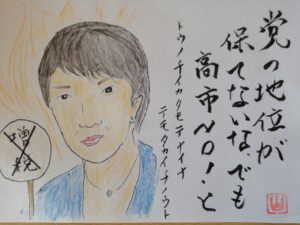 党の地位が
保てないな、でも
高市NO!と
トウノチイカタモテナイナ
テモタカイチノウト
増税